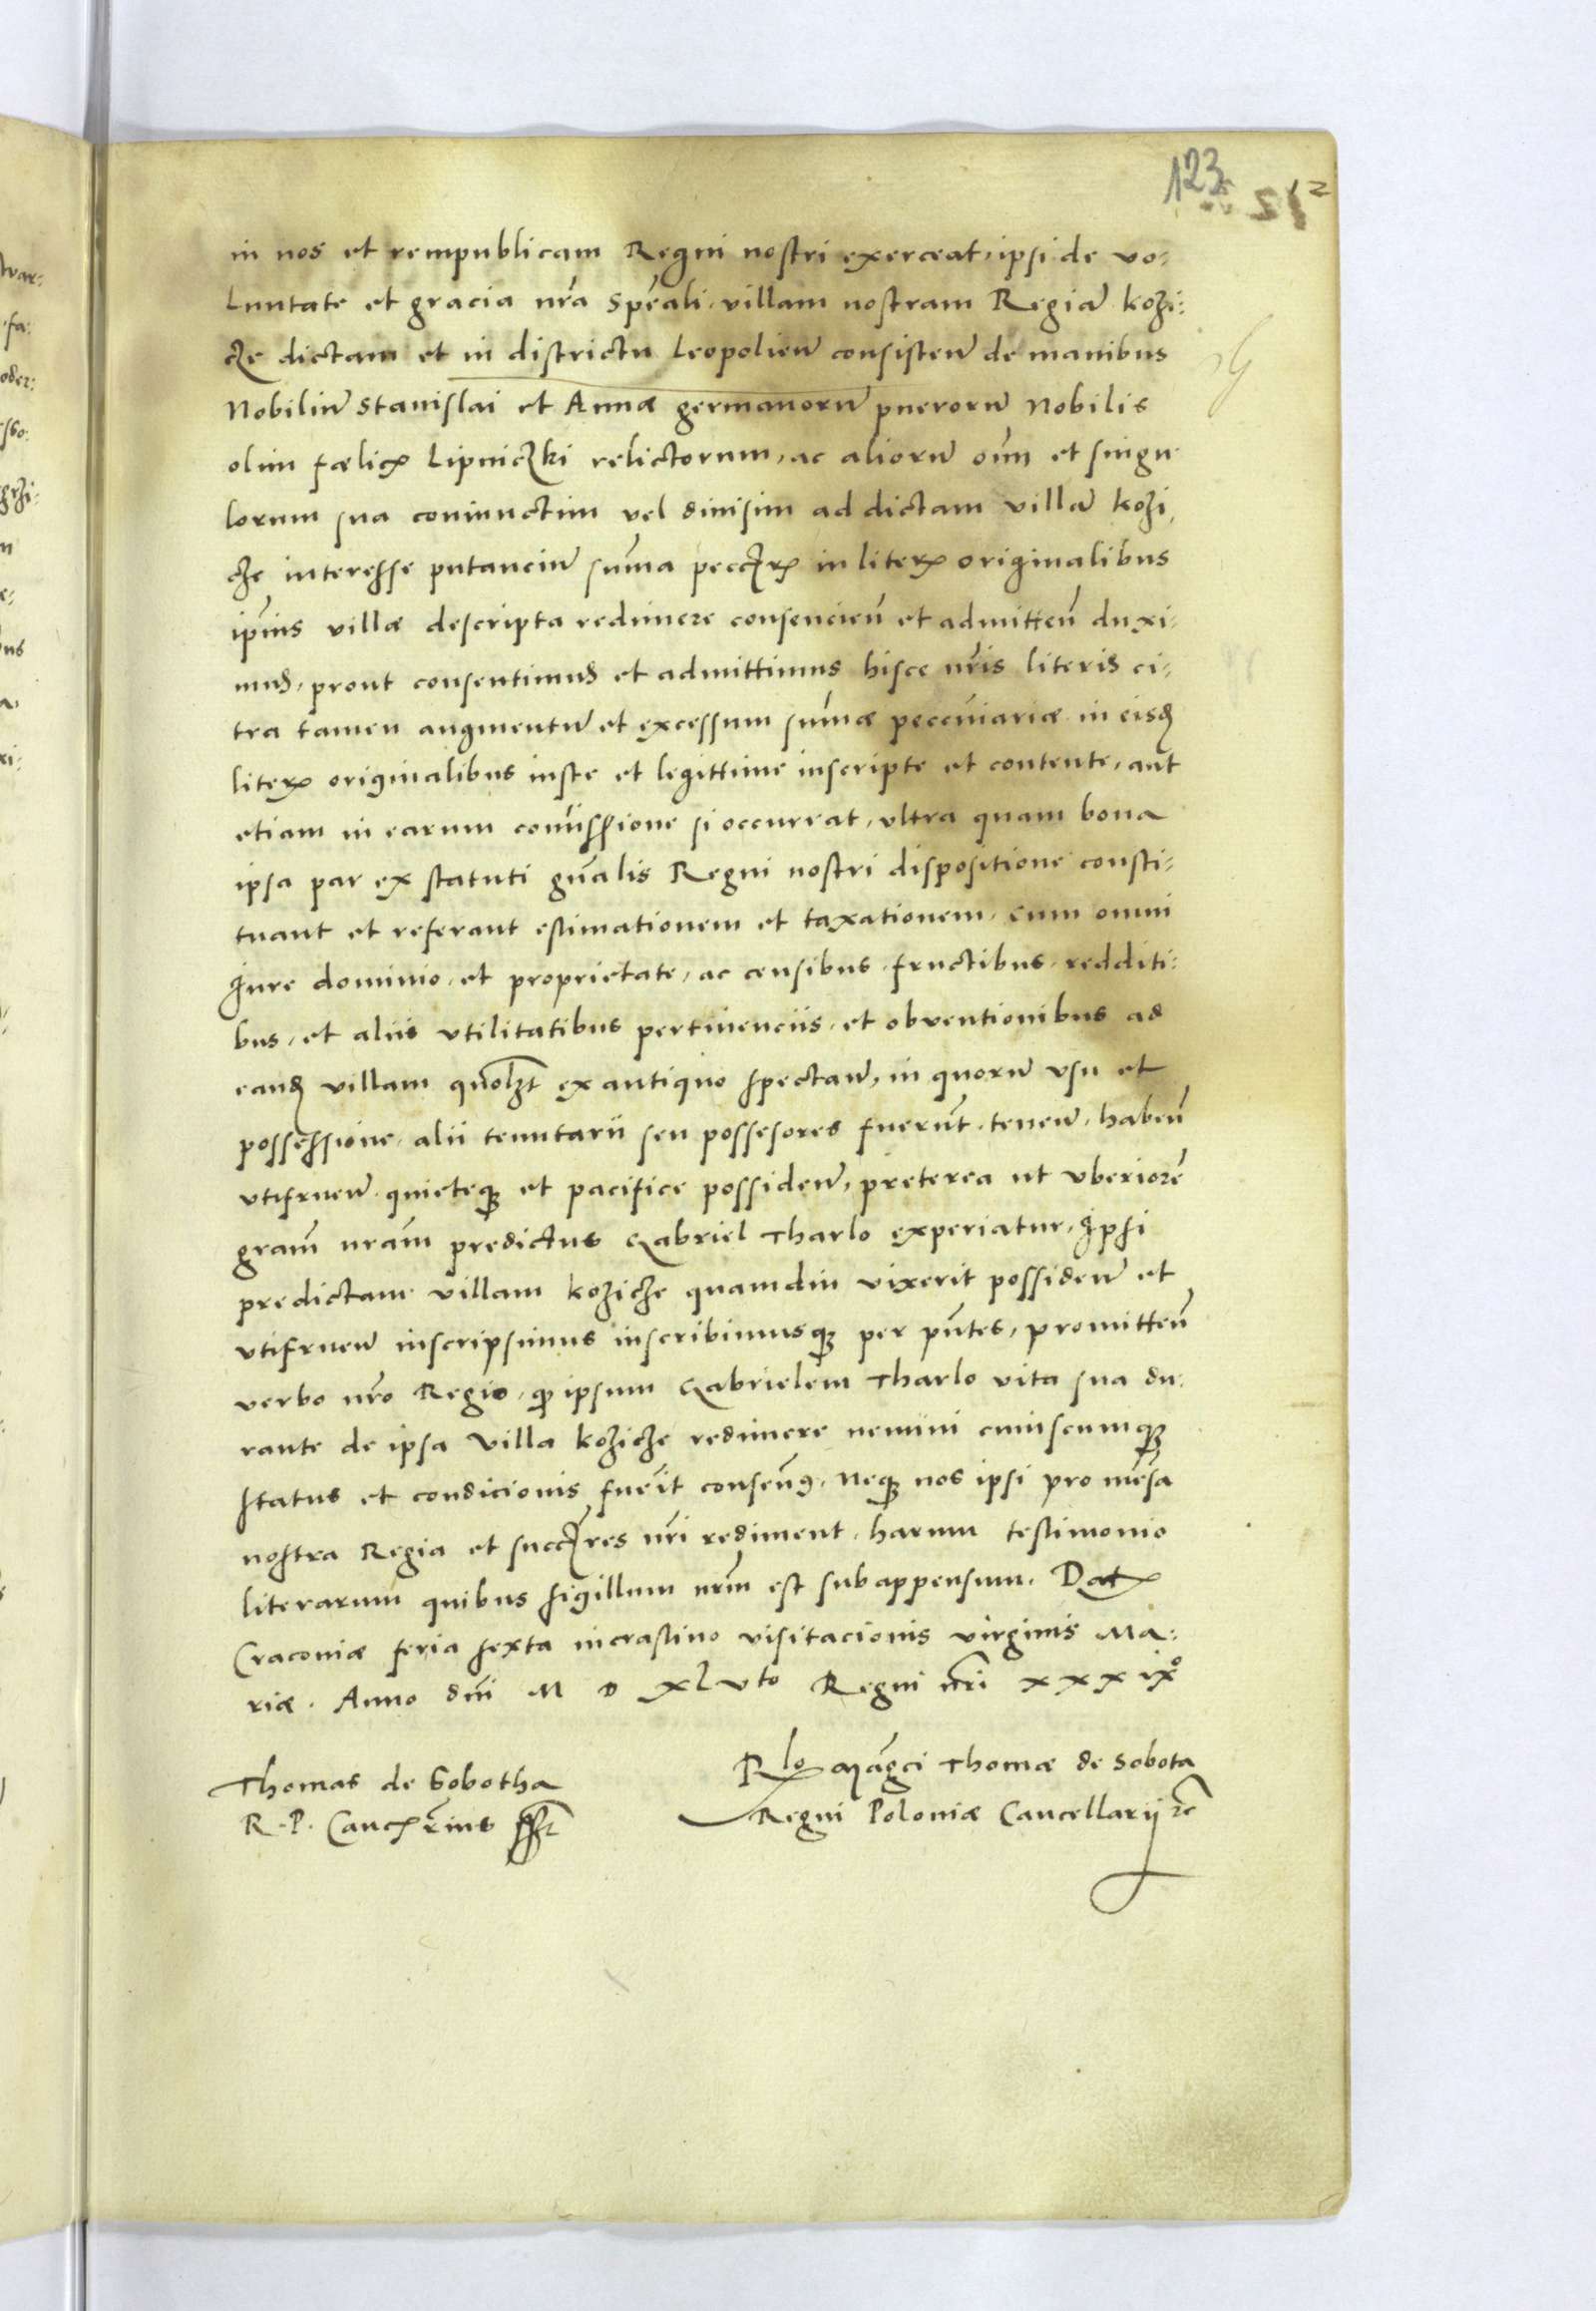 123
in nos et rempublicam Regni nostri exerceat, ipsi de vo-
luntate et gracia nr̃a spẽali, villam nostram Regiã Kozi-
cze dictam et in districtu Leopolieñ consisteñ de manibus
Nobiliũ Stanislai et Annæ germanorũ puerorũ Nobilis
olim fælicꝭ Lipniczki relictorum, ac aliorũ oĩm et singu
lorum sua coniunctim vel diuisim ad dictam villã Kozi
cze interesse putanciũ sum̃a pecc̃rꝭ in literꝭ originalibus
ip̃ius villæ descripta redimere consencieñ et admitteñ duxi-
mus, prout consentimus et admittimus hisce nr̃is literis ci-
tra tamen augmentũ et excessum sum̃æ peccuniariæ in eisd̃
literꝭ originalibus iuste et legittime inscripte et contente, aut
etiam in earum com̃issione si occurrat, vltra quam bona
ipsa par ex statuti gñalis Regni nostri dispositione consti-
tuant et referant estimationem et taxationem, cum omni
Iure dominio, et proprietate, ac censibus, fructibus, redditi-
bus, et aliis vtilitatibus pertinenciis, et obventionibus ad
eand̃ villam quol̃zt ex antiquo spectañ, in quorũ vsu et
possessione, alii tenutarii seu possesores fuerũt, teneñ, habeñ
vtifrueñ, quieteqꝫ et pacifice possideñ, preterea ut vberiorẽ
gram̃ nram̃ predictus Gabriel Tharlo experiatur, Ipsi
predictam villam Koziche quamdiu vixerit possideñ et
vtifrueñ inscripsimus inscribimusqꝫ per pñtes, promitteñ
verbo nrõ Regio, qꝫ ipsum Gabrielem Tharlo vita sua du-
rante de ipsa villa Koziche redimere nemini cuiuscumqꝫ
status et condicionis fuer̃it conseñꝰ, neqꝫ nos ipsi pro mẽsa
nostra Regia et succ̃res nr̃i rediment, harum testimonio
literarum quibus sigillum nr̃m est subappensum. Datꝭ
Cracouiæ feria sexta in crastino visitacionis virginis Ma-
riæ. Anno dñi M D XLVto Regni nr̃i XXXIXº
Thomas de Sobotha
R. P. Cancꝭrius sst
Rlo Mãgci Thomæ de Sobota
Regni Poloniæ Cancellarij ꝛc̃